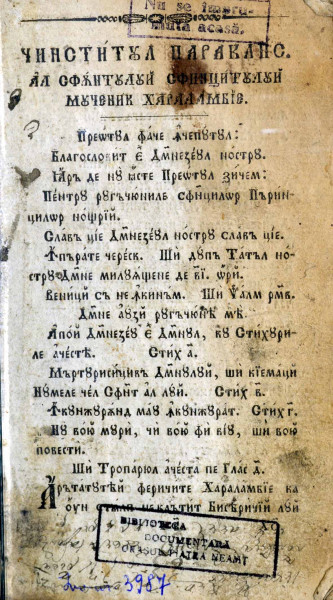 Nu se împru-
mută acasă.
ЧИНСТИТꙊЛ ПАРАКЛИС.
АЛ СФѪ́НТꙊЛꙊЙ СФИНЦИ́ТꙊЛꙊЙ
МꙊЧЕНИК ХАРАЛАМБЇЕ.
Преѡ́тꙋл фаче ꙟчепꙋтꙋл:
Благословит є҆́ Дм҃неꙁе́ꙋл ностру.
Іа҆́р де нꙋ ꙗ҆́сте Преѡ́тꙋл зичем:
Пе́нтрꙋ рꙋгъчюниле сфинцилѡр Пъ́рин-
цилѡр нощрїй.
Сла́въ ціе Дм҃неꙁе́ꙋл ностру сла́въ ціе.
Ꙟпъ́рате череск. Ши дꙋпъ Та́тъл но-
стрꙋ Дм҃не милꙋꙗ҆ще́не де в҃і. ѡ҆рй.
Вени́ци съ не ꙟкинъм. Ши Ѱалм рм҃в.
Дм҃не аꙋ́зй рꙋгъчю́нѣ мѣ.
Апо́й Дм҃неꙁеꙋ є҆́ Дм҃нꙋл, кꙋ Стихꙋри-
ле аче́стѣ. Стих а҃.
Мъртꙋрисици́въ Дм҃нꙋлꙋй, ши кїема́ци
Нꙋмеле чел Сфѫнт ал лꙋй. Стих в҃.
Ꙟкꙋнжꙋрѫнд маꙋ ꙟкꙋнжꙋрат. Стих г҃.
Нꙋ вою̀ мꙋри, чи вою̀ фи вїꙋ, ши вою̀
повести.
Ши Тропа́рюл аче́ста пе Глас д҃.
Арътатꙋте́й феричите Харала́мбїе ка
ꙋн Бисе́ричїй лꙋй
BIBLIOTECA
DOCUMENTARA
ORAȘUL PIATRA NEAMȚ
3987